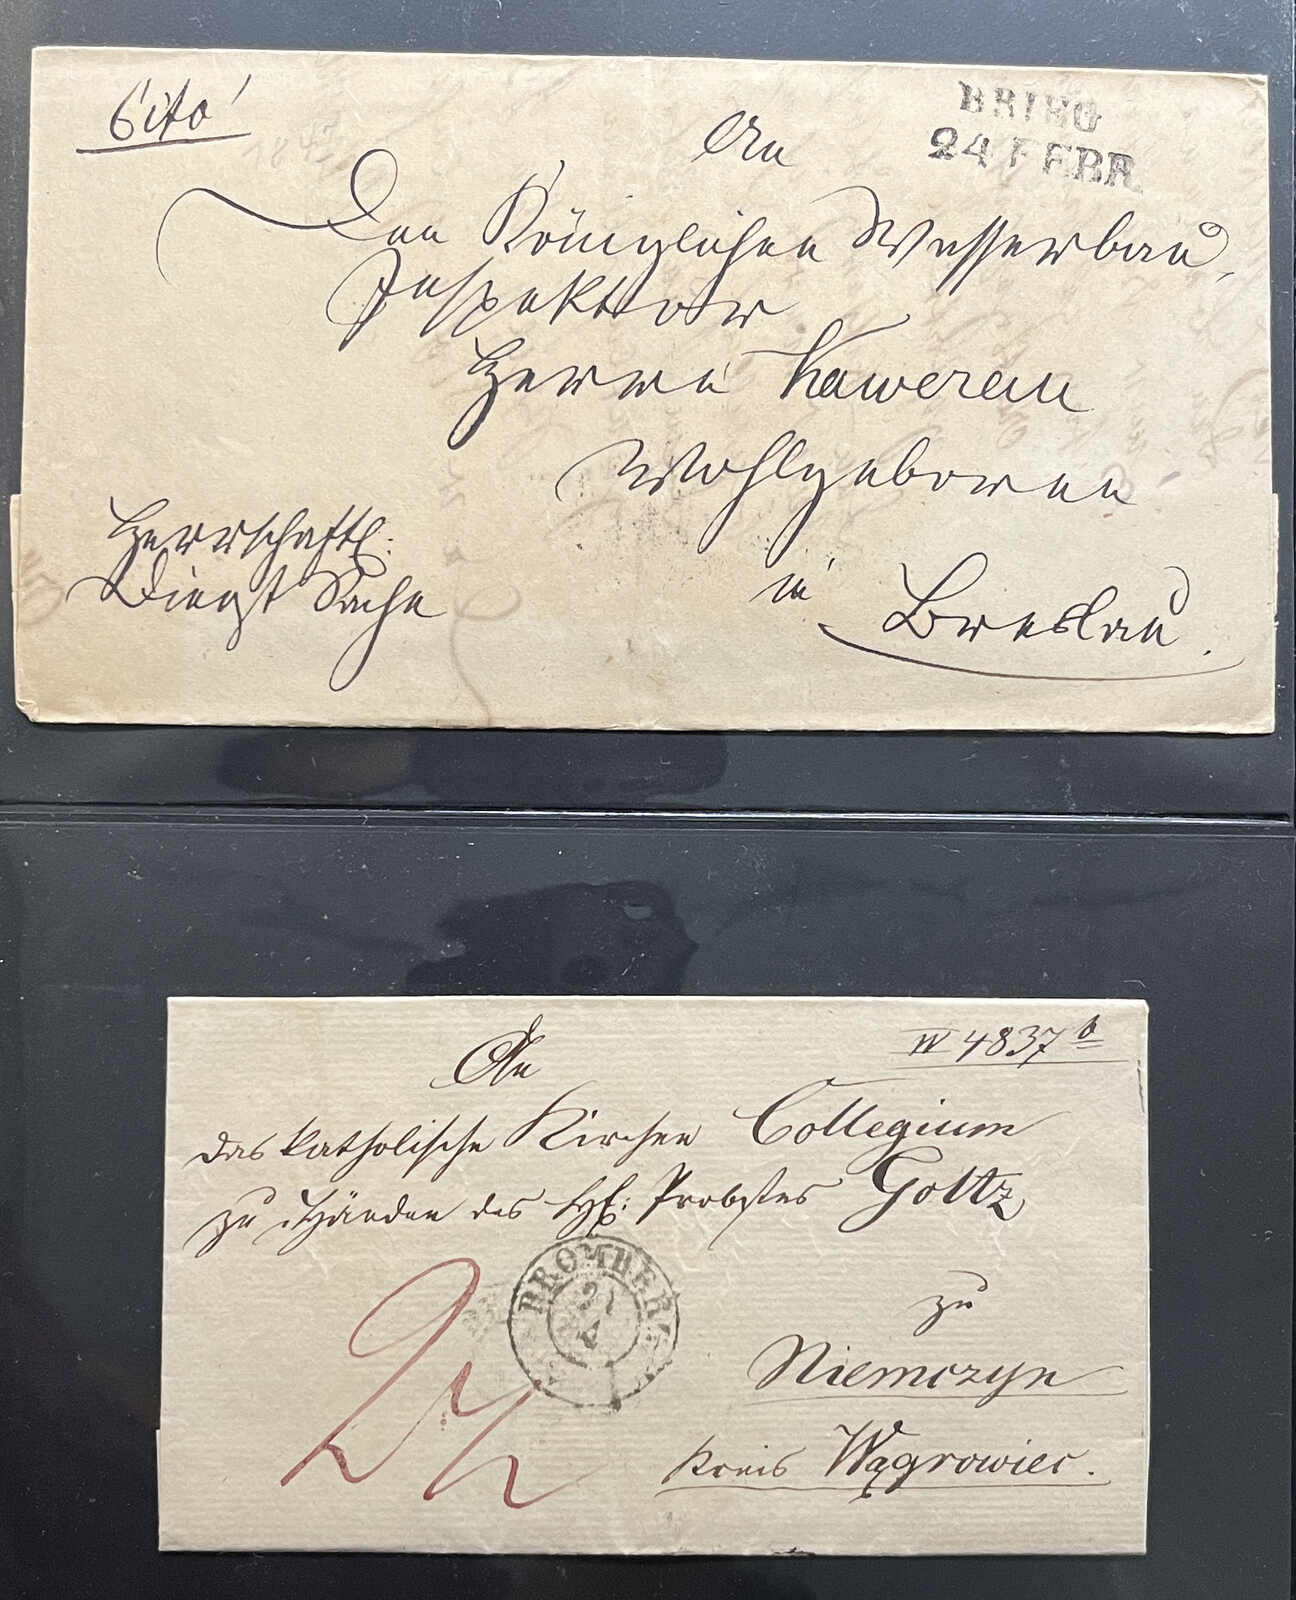 Cito!
An
BRIEG
24 FEBR.
Den Königlichen Wasserbau,
Inspektor
Herrn Kawerau
Wohlgeboren
in Breslau.
Herrschaftl:
Dienst Sache
An
IV 4837 b
das katholische Kirchen Collegium
zu Händen des H: Probstes Goltz
BROMBERG
zu
Niemczyn
Kreis Wągrowiec.